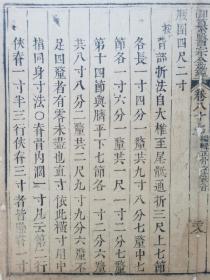 腰圍四尺二寸
背部折法自大椎至尾骶通折三尺上七節
各長一寸四分一釐共九寸八分七釐中七
節各一寸六分一釐共一尺一寸二分七釐
第十四節與臍平下七節各一寸二分六釐
共八寸八分二釐共二尺九寸九分六釐不
足四釐者有零未盡也直寸依此橫寸用中
指同身寸法○脊骨內闊一寸凡云第二行
俠脊一寸半三行俠脊三寸者皆除脊一寸